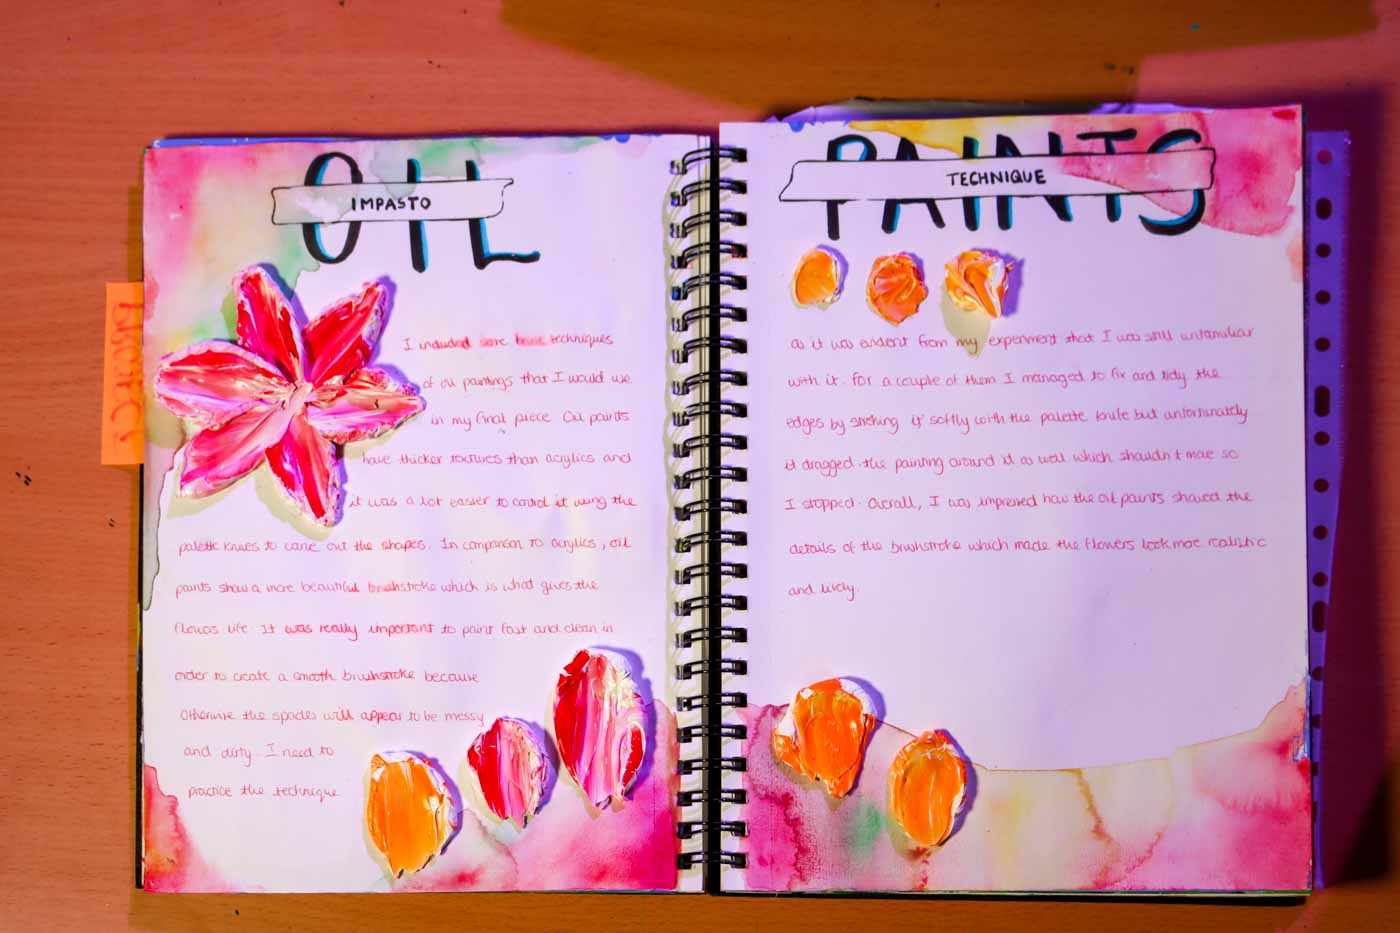 OIL
IMPASTO
I included some basic techniques
of oil paintings that I would use
in my final piece. Oil paints
have thicker textures than acrylics and
it was a lot easier to control it using the
palette knives to carve out the shapes. In comparison to acrylics, oil
paints show a more beautiful brushstroke which is what gives the
flowers life. It was really important to paint fast and clean in
order to create a smooth brushstroke because
otherwise the spades will appear to be messy
and dirty. I need to
practice the technique
PAINTS
TECHNIQUE
as it was evident from my experiment that I was still unfamiliar
with it. For a couple of them I managed to fix and tidy the
edges by stroking it softly with the palette knife but unfortunately
it dragged the painting around it as well which shouldn't move so
I stopped. Overall, I was impressed how the oil paints showed the
details of the brushstroke which made the flowers look more realistic
and lively.